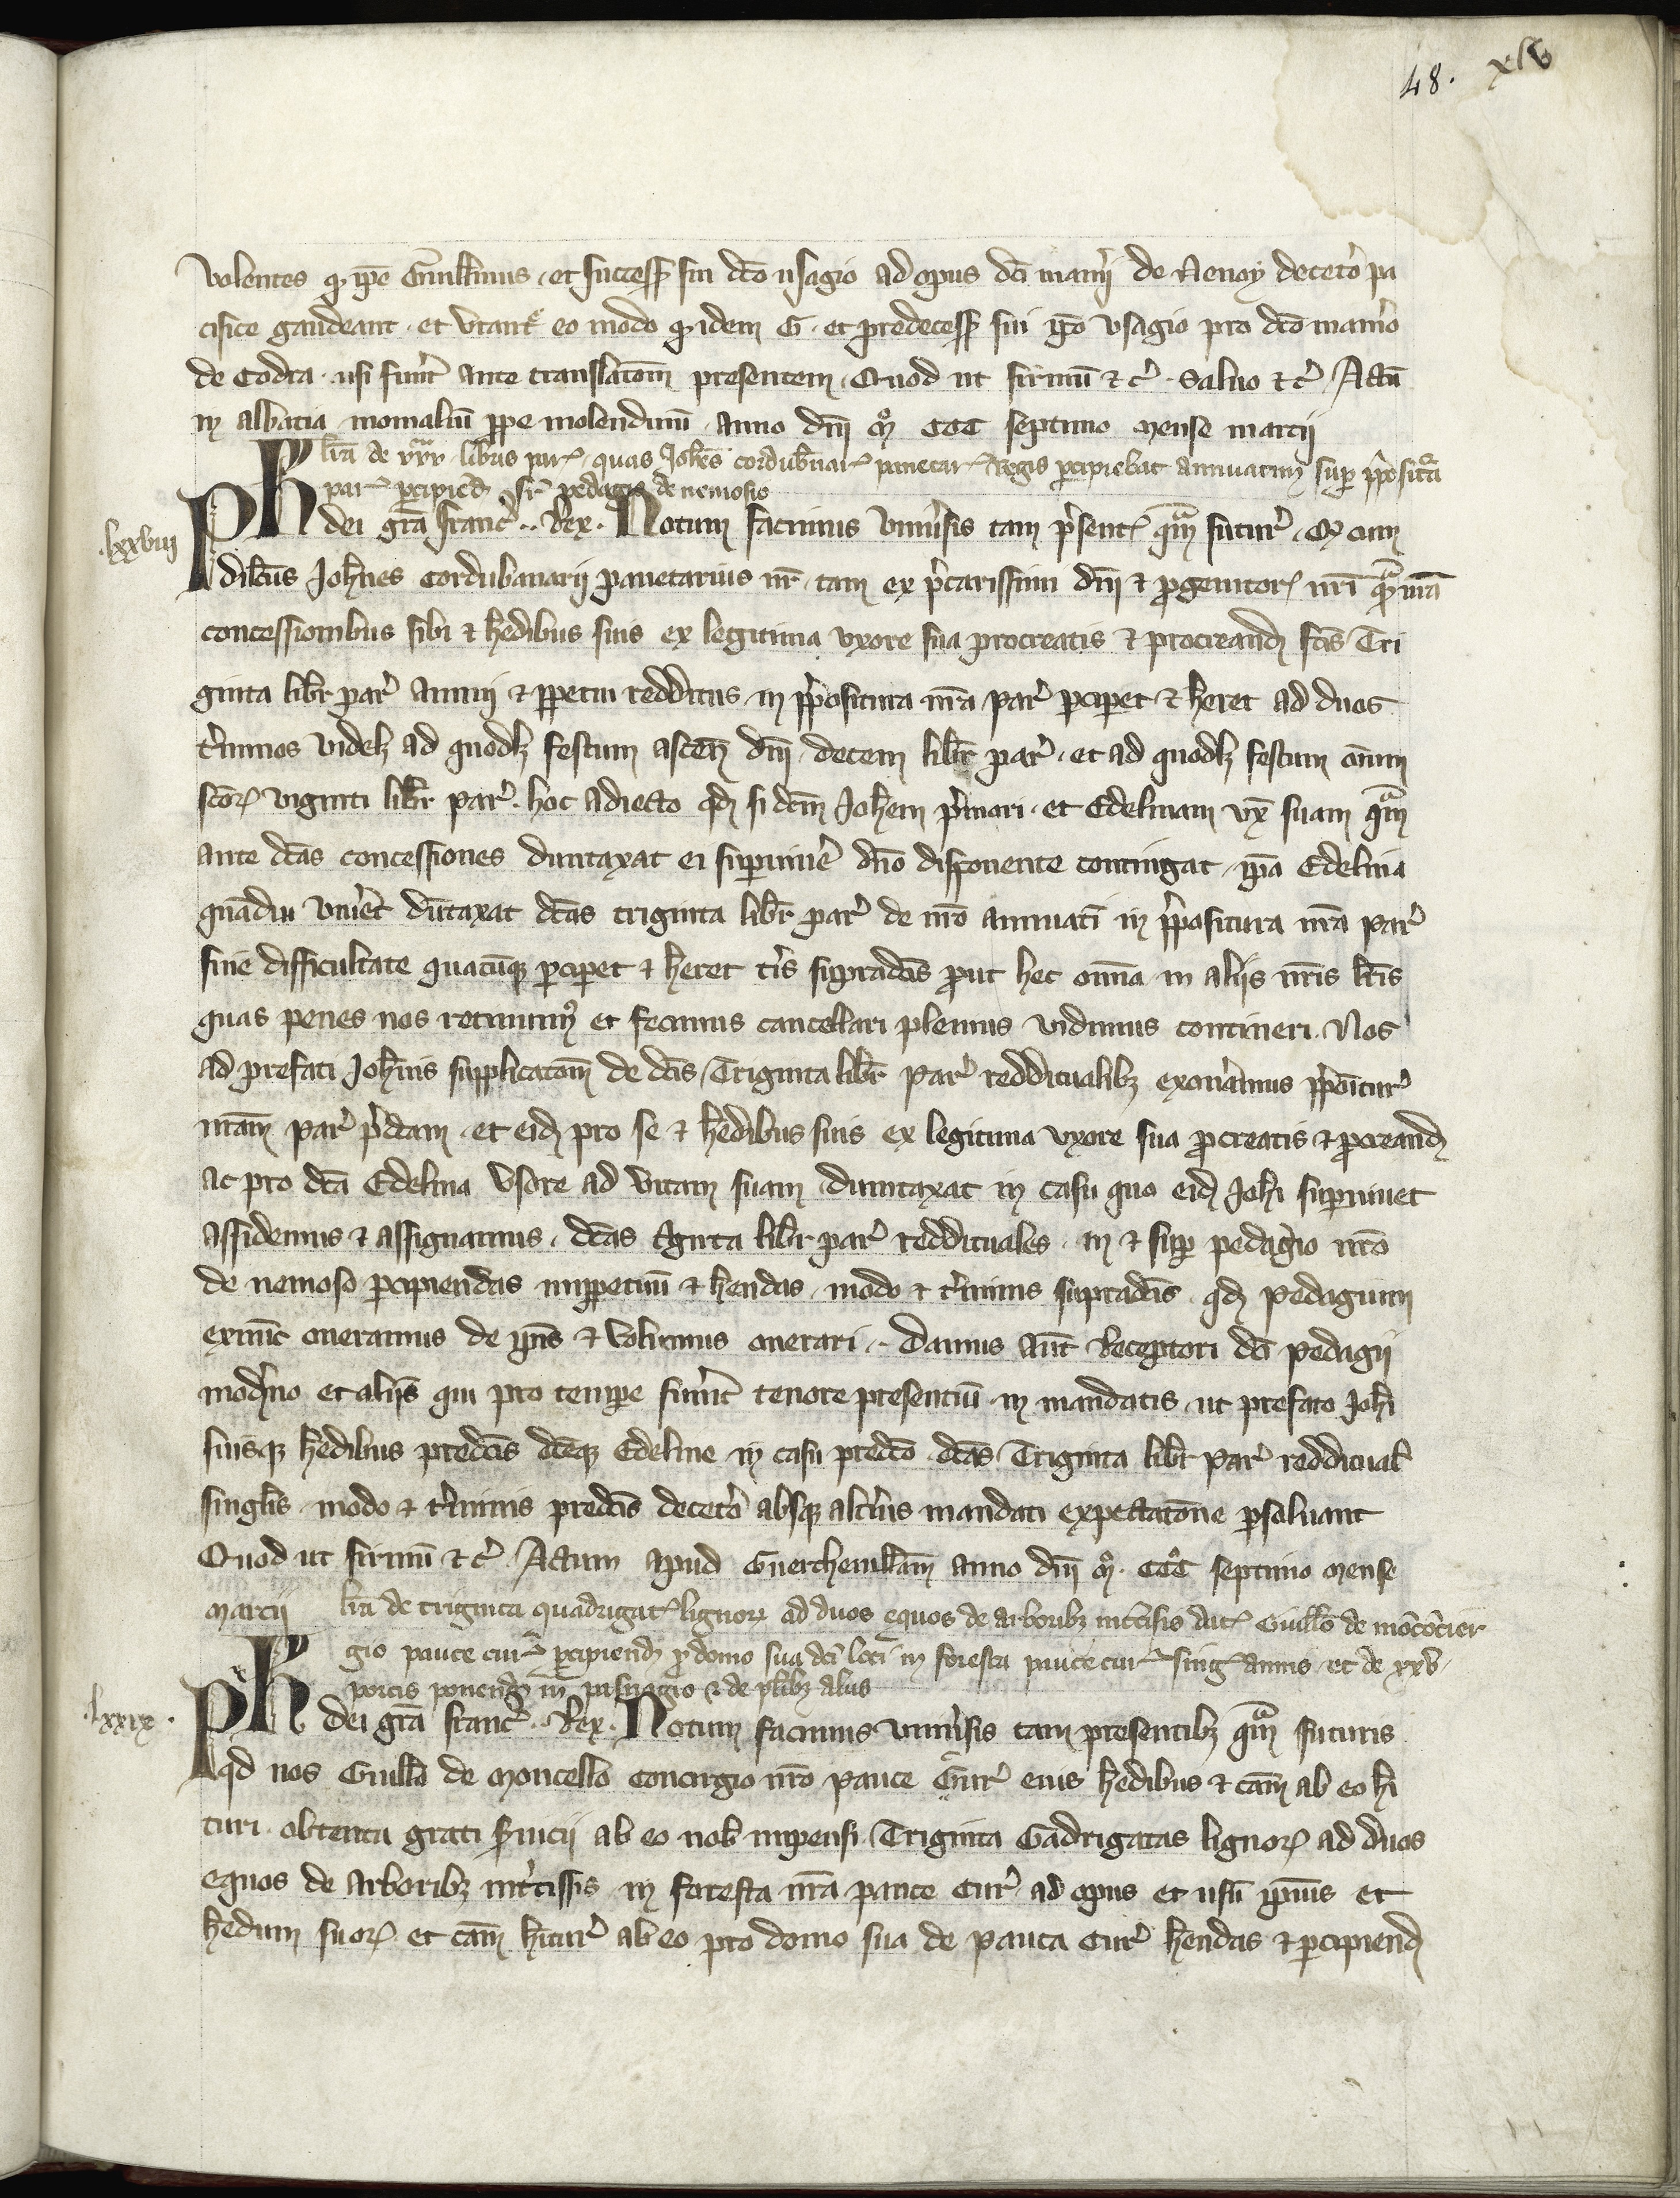 48. xlv
volentes q ipe Guillmus et success sui dco usagio ad opus dci maner de Nenoy deceto pa
cifice gaudeant et utant eo modo q idem G. et predecess sui ipo usagio pro dco manio
de Codra usi funt ante translatom presentem. Quod ut firmu et c Salvo et c Actu
in abbatia monialiu ppe molendinu anno dni m CCC septimo mense marcii
lra de xxx libris par quas Johes cordubenar panetar Regis pcipiebat annuatim sup ppositura
par pcipied sr pedagio de nemosio
.lxxviii
Ph dei gra franc Rex. Notum facimus univsis tam psent qm futur q cum
dilcus Johnes Cordubanarii panetarius nr tam ex pcarissimi dni et progenitor nri qm nra
concessionibus sibi et hedibus suis ex legitima uxore sua procreatis et procreand fcis Tri
ginta libr par annui et ppetui redditus in ppositura nra par pcipet et heret ad duos
tminos videlz ad quodlz festum ascen dni decem libr par et ad quodlz festum omnium
scor viginti libr par hoc adiecto qd si dcm Johem pmori et Edelinam ux suam qm
ante dcas concessiones duntaxat ei supvive dno disponente contingat ipa Edelina
quadiu vivet dutaxat dcas triginta libr par de nro annuati in ppositura nra par
sine difficultate quacuq pcipet et heret tis supradcis prout hec omia in aliis nris lris
quas penes nos retinuim et fecimus cancellari plenius vidimus contineri. Nos
ad prefati Johnis supplicatom de dcis Triginta libr par redditualibz exonamus ppoitur
nram par pdcam et eid pro se et hedibus suis ex legitima uxore sua procreatis et procreand
ac pro dca Edelina Usore ad vitam suam duntaxat in casu quo eid Johi supvivet
assidemus et assignamus dcas tginta libr par reddituales in et sup pedagio nro
de nemoso pcipiendas imppetuu et hendas modo et tminis supradcis qd pedagium
exnuc oneramus de ipis et volumus onerari. Damus aut Receptori dci pedagii
modno et aliis qui pro tempe funt tenore presentiu in mandatis ut prefato Johi
suisq hedibus predcis dceq Edeline in casu predco dcas Triginta libr par reddittual
singlis modo et tminis predcis deceto absq altius mandati expectatone psolvant
Quod ut firmu et c Actum apud Guerchevillam anno dni m. CCC septimo mense
marcii lra de triginta quadrigat lignor ad duos equos de arboribz intcisis dat Guillo de mococier
gio pauce cur pcipiend p domo sua dci loci in foresta paucecur sing annis et de xxv
porcis ponend in pasnagio et de plibz aliis
.lxxix.
Ph dei gra franc Rex. Notum facimus univsis tam presentibz qm futuris
qd nos Guillo de Moncello concirgio nro pauce Cur eius hedibus et cam ab eo hi
turi obtentu grati svicii ab eo nob impensi Triginta Gadrigatas lignor ad duos
equos de arboribz intcissis in foresta nra pauce Cur ad opus et usu ipius et
hedum suor et cam hitur ab eo pro domo sua de pauca Cur hendas et pcipiend